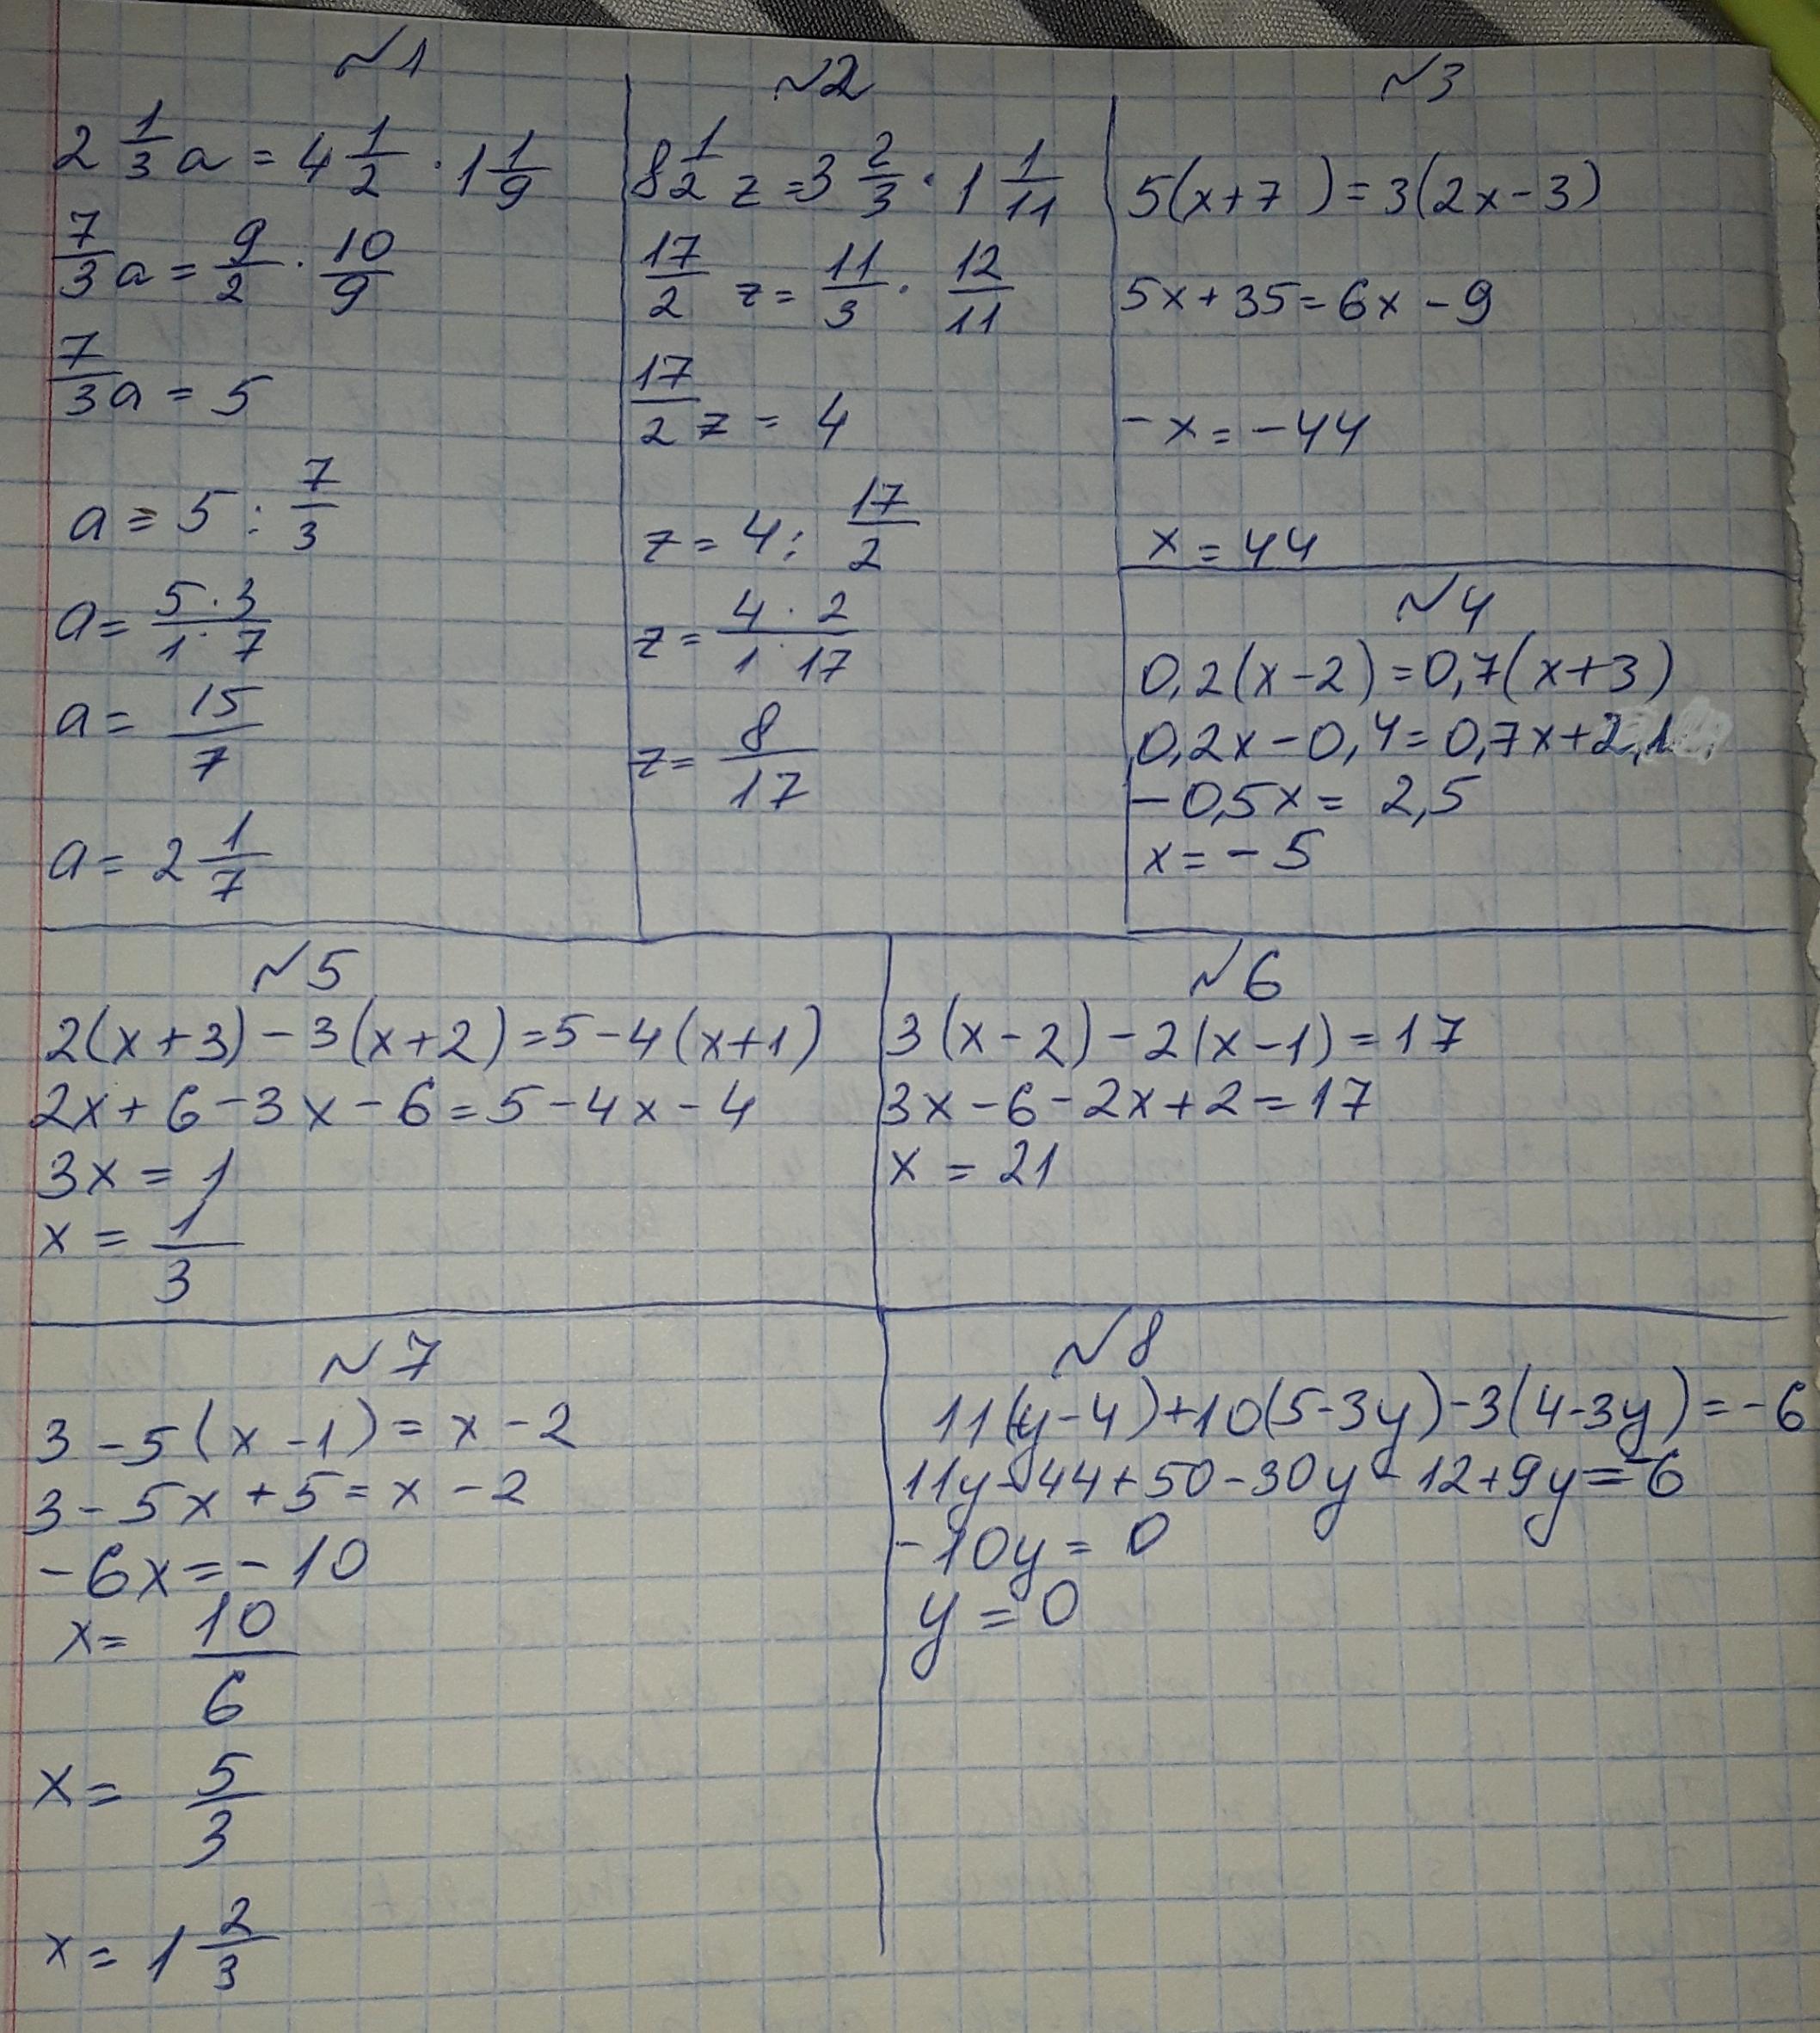 №1
2 1/3 a = 4 1/2 · 1 1/9
7/3 a = 9/2 · 10/9
7/3 a = 5
a = 5 : 7/3
a = 5·3/1·7
a = 15/7
a = 2 1/7
№2
8 1/2 z = 3 2/3 · 1 1/11
17/2 z = 11/3 · 12/11
17/2 z = 4
z = 4 : 17/2
z = 4·2/1·17
z = 8/17
№3
5(x+7) = 3(2x-3)
5x+35=6x-9
-x=-44
x=44
№4
0,2(x-2)=0,7(x+3)
0,2x-0,4=0,7x+2,1
-0,5x= 2,5
x=-5
№5
2(x+3)-3(x+2)=5-4(x+1)
2x+6-3x-6=5-4x-4
3x=1
x = 1/3
№6
3(x-2)-2(x-1)=17
3x-6-2x+2=17
x = 21
№7
3-5(x-1)=x-2
3-5x+5=x-2
-6x=-10
x= 10/6
x= 5/3
x= 1 2/3
№8
11(y-4)+10(5-3y)-3(4-3y)=-6
11y-44+50-30y-12+9y=-6
-10y=0
y=0